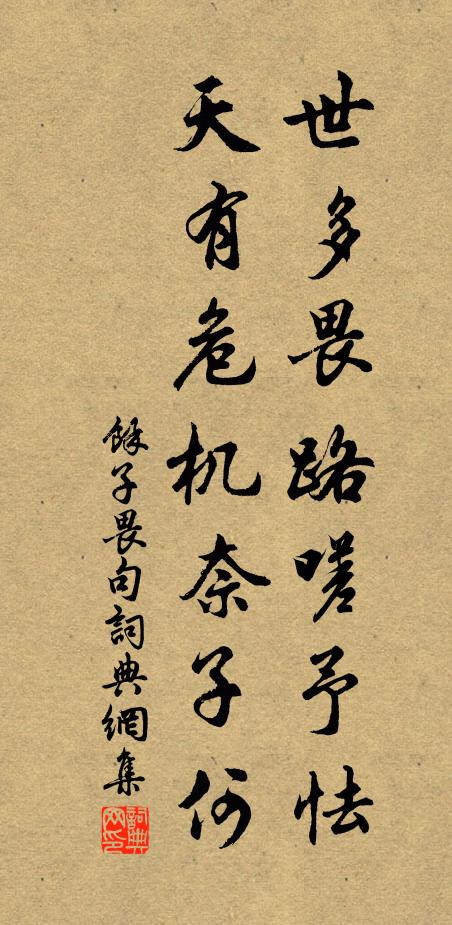 世多畏路嗟予怯
天有危机奈子何
餘子畏句詞典網集
詞典
网印